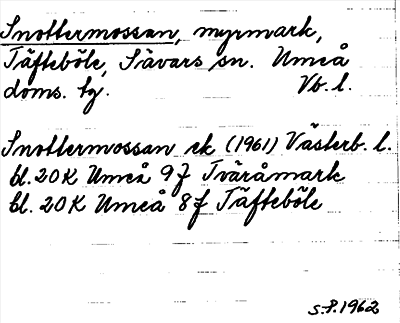 Snottermossan, myrmark,
Täfteböle, Sävars sn. Umeå
doms. tg. Vb. l.
Snottermossan ek (1961) Västerb. l.
bl. 20K Umeå 9f Tväråmark
bl. 20K Umeå 8f Täfteböle
S.P. 1962